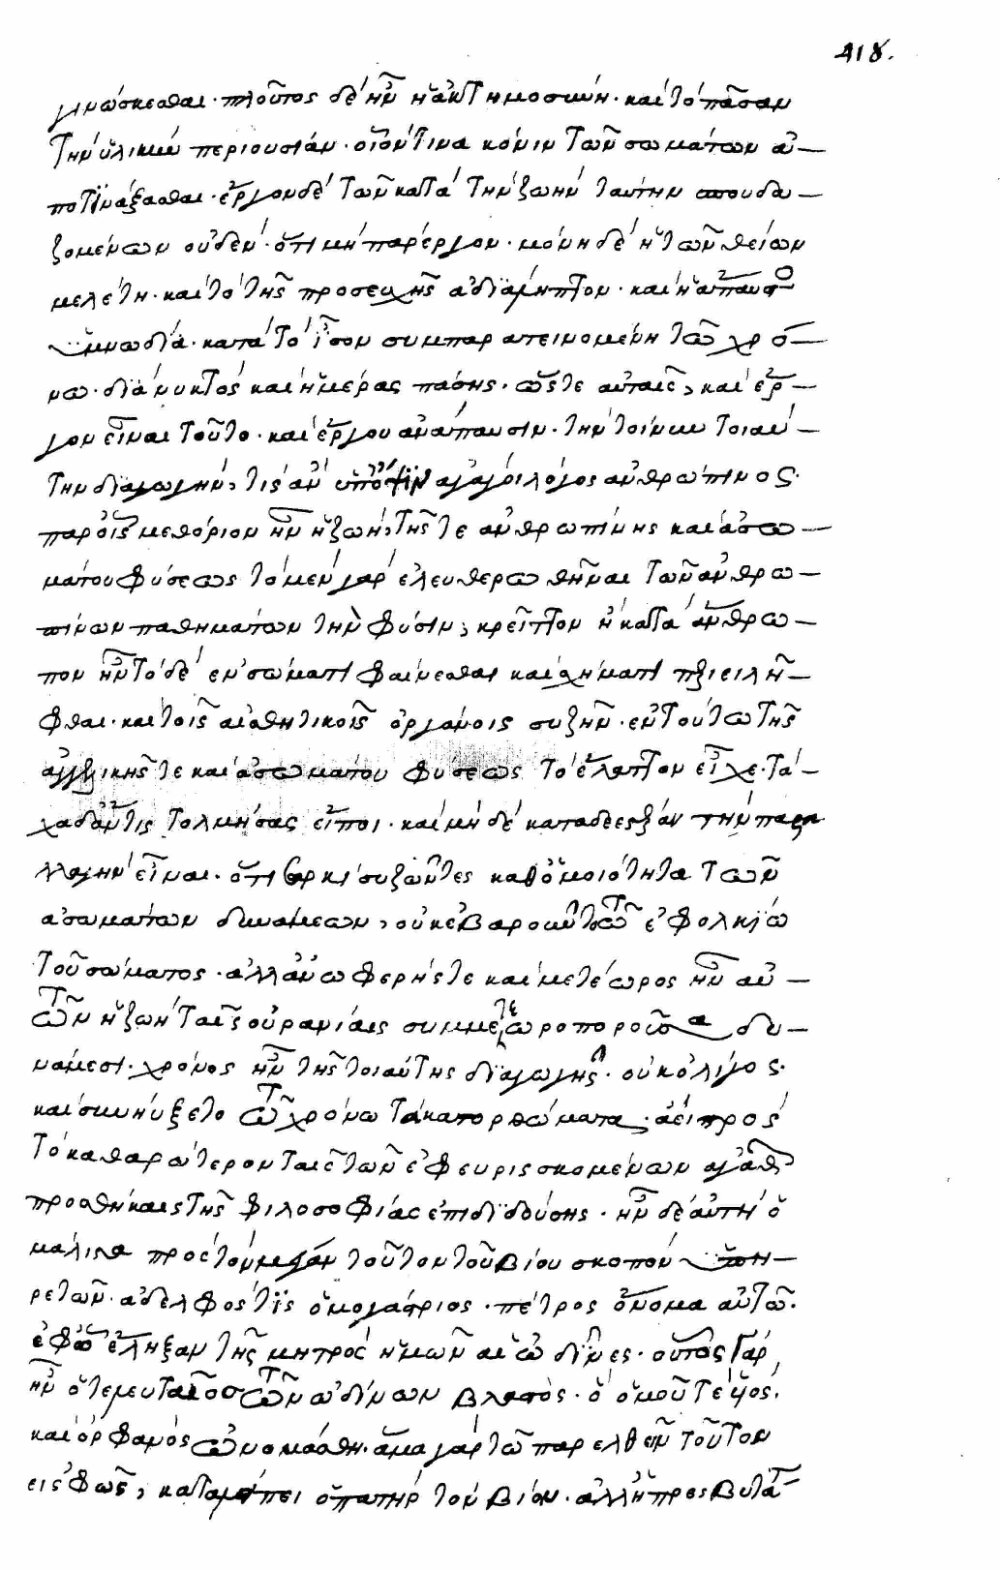 418.
γινώσκεσθαι· πλοῦτος δὲ ἦν ἡ ἀκτημοσύνη· καὶ τὸ πᾶσαν
τὴν ὑλικὴν περιουσίαν· οἷόν τινα κόνιν τῶν σωμάτων ἀ–
ποτινάξασθαι· ἔργον δὲ τῶν κατὰ τὴν ζωὴν ταύτην σπουδα–
ζομένων οὐδέν· ὅτι μὴ πάρεργον· μόνη δὲ ἡ τῶν θείων
μελέτη· καὶ τὸ τῆς προσευχῆς ἀδιάληπτον· καὶ ἡ ἄπαυστο
ὑμνωδία· κατὰ τὸ ἶσον συμπαρατεινομένη τῶ χρό–
νω· διὰ νυκτὸς καὶ ἡμέρας πάσης· ὥστε αὐταῖς, καὶ ἔρ–
γον εἶναι τοῦτο· καὶ ἔργου ἀνάπαυσιν· τὴν τοίνυν τοιαύ–
την διαγωγὴν, τίς ἂν ὑπ' ὄψιν ἀγάγοι λόγος ἀνθρώπινος·
παρ' οἷς μεθόριον ἦν ἡ ζωὴ, τῆς τε ἀνθρωπίνης καὶ ἀσω–
μάτου φύσεως τὸ μὲν γὰρ ἐλευθερωθῆναι τῶν ἀνθρω–
πίνων παθημάτων τὴν φύσιν, κρεῖττον ἢ κατὰ ἄνθρω–
πον ἦν τὸ δὲ ἐν σώματι φαίνεσθαι καὶ σχήματι περιειλῆ–
φθαι· καὶ τοῖς αἰσθητικοῖς ὀργάνοις συζῆν· ἐν τούτω τῆς
ἀγγελικῆς τε καὶ ἀσωμάτου φύσεως τὸ ἔλαττον εἶχε· τά–
χα δ' ἄν τις τολμήσας εἴποι· καὶ μὴ δὲ καταδεεστέραν τὴν παρα
λλαγὴν εἶναι· ὅτι σαρκὶ συζῶντες καθ' ὁμοιότητα τῶν
ἀσωμάτων δυνάμεων, οὐκ ἐβαροῦντο τῶ ἐφολκίω
τοῦ σώματος· ἀλλ' ἀνωφερής τε καὶ μετέωρος ἦν αὐ–
τῶν ἡ ζωὴ ταῖς οὐρανίαις συμμετεωροποροῦσα δυ–
νάμεσι· χρόνος ἦν τῆς τοιαύτης διαγωγῆς· οὐκ ὀλίγος·
καὶ συνηύξετο τῶ χρόνω τὰ κατορθώματα· ἀεὶ πρὸς
τὸ καθαρώτερον ταῖς τῶν ἐφευρισκομένων ἀγαθῶν
προσθήκαις τῆς φιλοσοφίας ἐπιδιδούσης· ἦν δὲ αὐτῆ ὁ
μάλιστα πρὸς τὸν μέγαν τοῦτον τοῦ βίου σκοπὸν ὑπη–
ρετῶν· ἀδελφός τις ὁμογάστριος· πέτρος ὄνομα αὐτῶ·
ἐφ' ὃ ἔληξαν τῆς μητρὸς ἡμῶν αἱ ὠδῖνες· οὗτος γὰρ
ἦν ὁ τελευταῖος τῶν ὠδίνων βλαστὸς· ὁ ὁμοῦ τε ὑιὸς·
καὶ ὀρφανὸς ὠνομάσθη· ἅμα γὰρ τῶ παρελθεῖν τοῦτον
εἰς φῶς, καταλείπει ὁ πατὴρ τὸν βίον· ἀλλ' ἡ πρεσβυτάτ